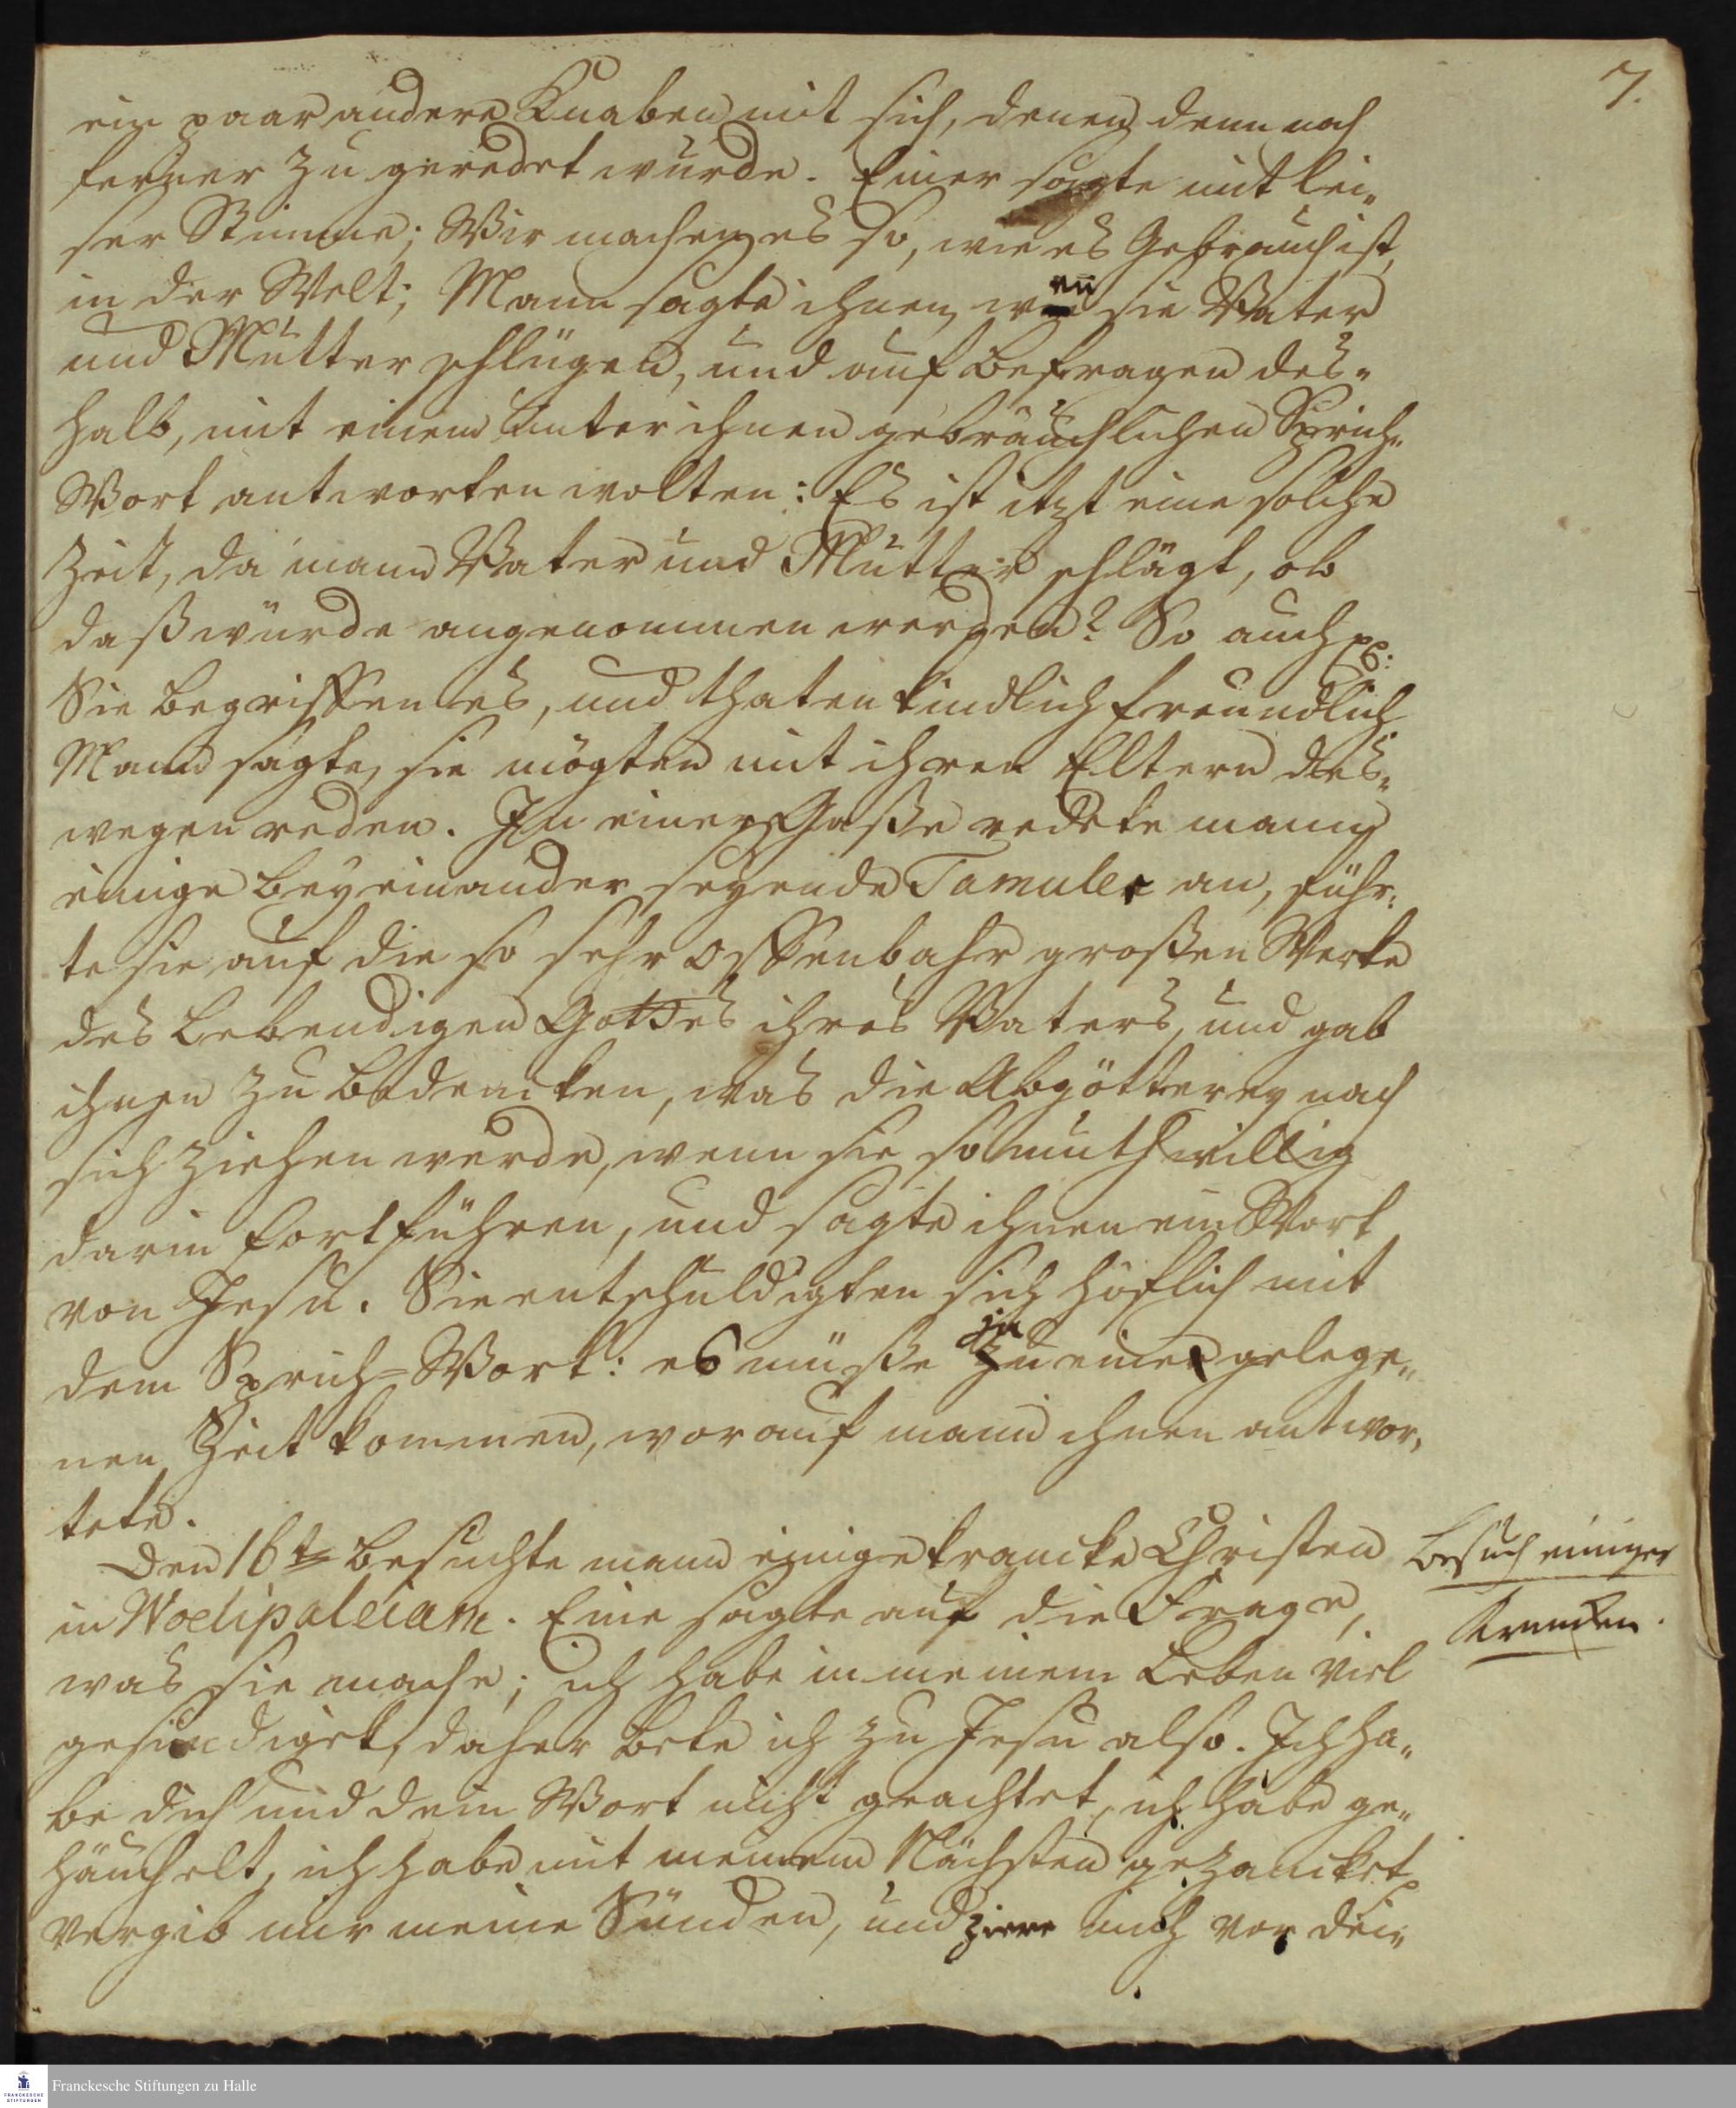 7.
ein paar andere Knaben mit sich, denen denn noch
ferner zu geredet wurde. Einer sagte mit lei„
ser Stimme; Wir machen es so, wie es Gebrauch ist,
in der Welt; Mann sagte ihnen, wen̅ sie Vater
und Mutter schlügen, und auf Befragen des„
halb, mit einem unter ihnen gebräuchlichen Sprich„
Wort antworten wolten: Es ist itzt eine solche
Zeit, da mann Vater und Mutter schlägt, ob
daß würde angenommen werden? So auch pp.
Sie begriffen es, und thaten kindlich freundlich
Mann sagte, sie mögten mit ihren Eltern des„
wegen reden. In einer Gaße redete mann
einige beyeinander seyende Tamuler an, führ„
te sie auf die so sehr offenbahr großen Werke
des Lebendigen Gottes ihres Vaters, und gab
ihnen zu bedencken, was die Abgötterey nach
sich ziehen werde, wenn sie so muthwillig
darin fortführen, und sagte ihnen ein Wort
von Jesu. Sie entschuldigten sich höflich mit
dem Sprich-Wort: es müße zu einer gelege„
nen Zeit kommen, worauf mann ihnen antwor„
tete.
Den 16te besuchte mann einige krancke Christen
in Woelipaleiam. Eine sagte auf die Frage,
was sie mache; ich habe in meinem Leben viel
gesündiget, daher bete ich zu Jesu also. Ich ha„
be dich und dein Wort nicht geachtet, ich habe ge„
häuchelt, ich habe mit meinem Nächsten gezancket
vergib mir meine Sünden, und ziere mich vor dei„
Besuch einiger
Krancken.
Franckesche Stiftungen zu Halle
FRANCKESCHE
STIFTUNGEN